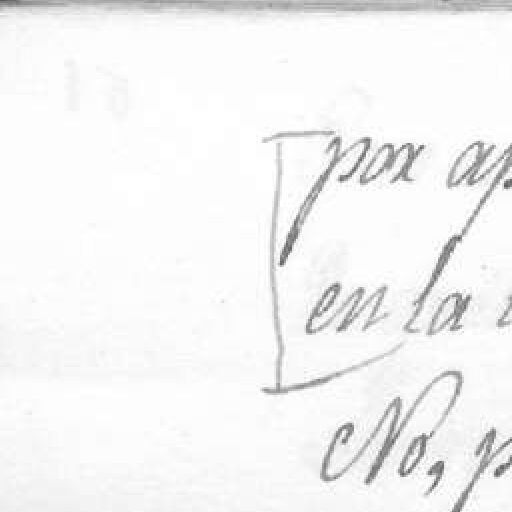 por ap
en la
No, p